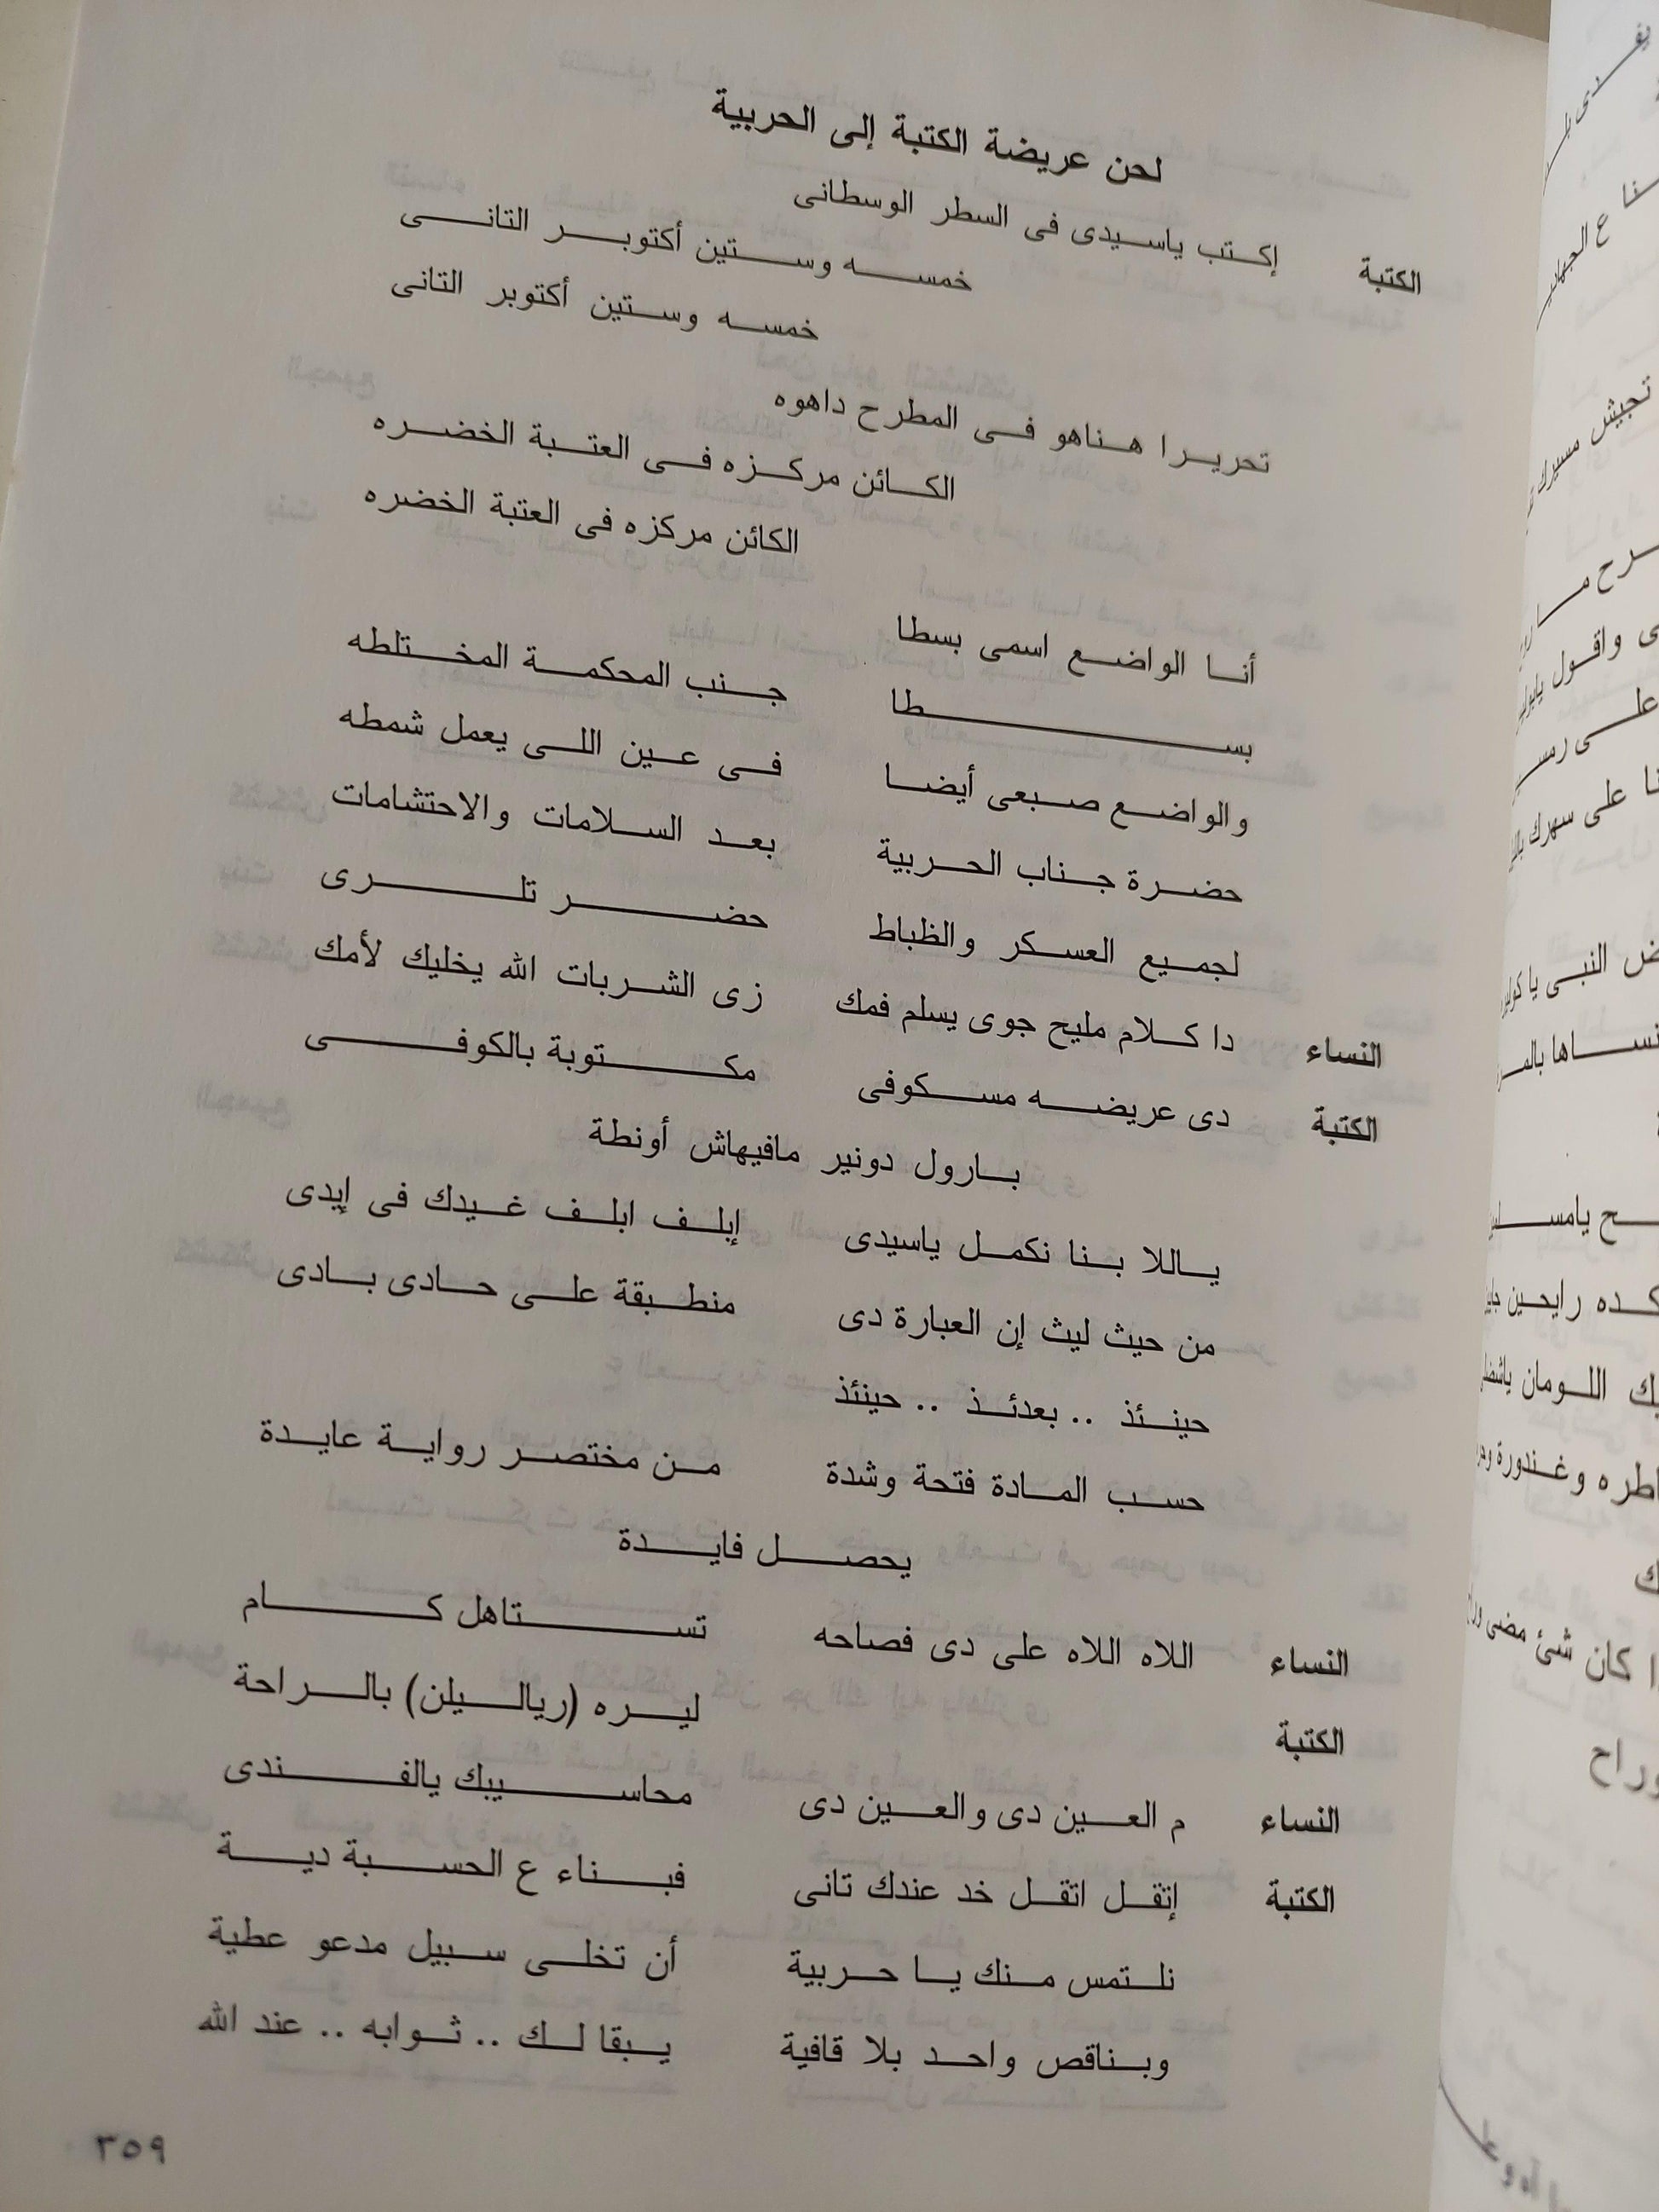 لحن عريضة الكتبة إلى الحربية
الكتبة إكتب ياسيدى فى السطر الوسطانى
خمسه وستين أكتوبر التانى
خمسه وستين أكتوبر التانى
تحريرا هناهو فى المطرح داهوه
الكائن مركزه فى العتبة الخضره
الكائن مركزه فى العتبة الخضره
أنا الواضع اسمى بسطا جنب المحكمة المختلطه
بسطا
والواضع صبعى أيضا فى عين اللى يعمل شمطه
حضرة جناب الحربية بعد السلامات والاحتشامات
لجميع العسكر والظباط حضر تلرى
النساء دا كلام مليح جوى يسلم فمك زى الشربات الله يخليك لأمك
الكتبة دى عريضه مسكوفى مكتوبة بالكوفى
بارول دونير مافيهاش أونطة
ياللا بنا نكمل ياسيدى إبلف ابلف غيدك فى إيدى
من حيث ليث إن العبارة دى منطبقة على حادى بادى
حينئذ .. بعدئذ .. حينئذ
حسب المادة فتحة وشدة من مختصر رواية عايدة
يحصل فايدة
النساء اللاه اللاه على دى فصاحه تستاهل كام
الكتبة ليره (ريالين) بالراحة
النساء م العين دى والعين دى محاسيبك يالفندى
الكتبة إتقل اتقل خد عندك تانى فبناء ع الحسبة دية
نلتمس منك يا حربية أن تخلى سبيل مدعو عطية
وبناقص واحد بلا قافية يبقا لك .. ثوابه .. عند الله
٣٥٩